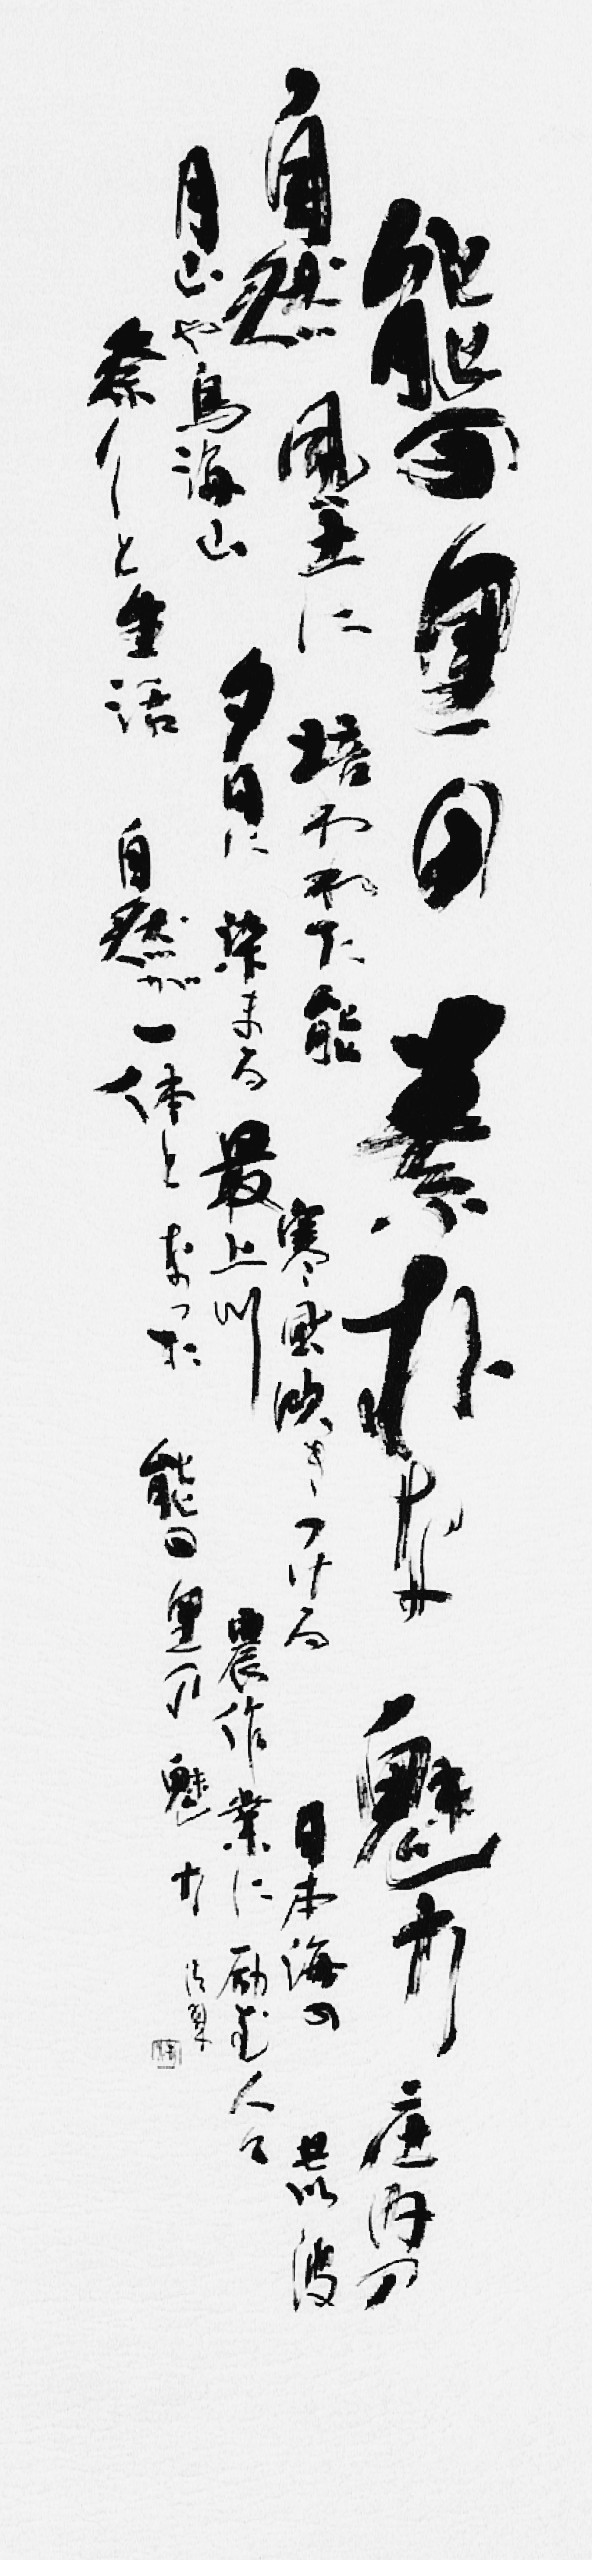 能の里の 素朴な 魅力 庄内の
自然 風土に 培われた能 寒風吹きつける 日本海の 荒波
月山や鳥海山 夕日に 染まる 最上川 農作業に励む人々
祭りと生活 自然が一体となった 能の里の魅力